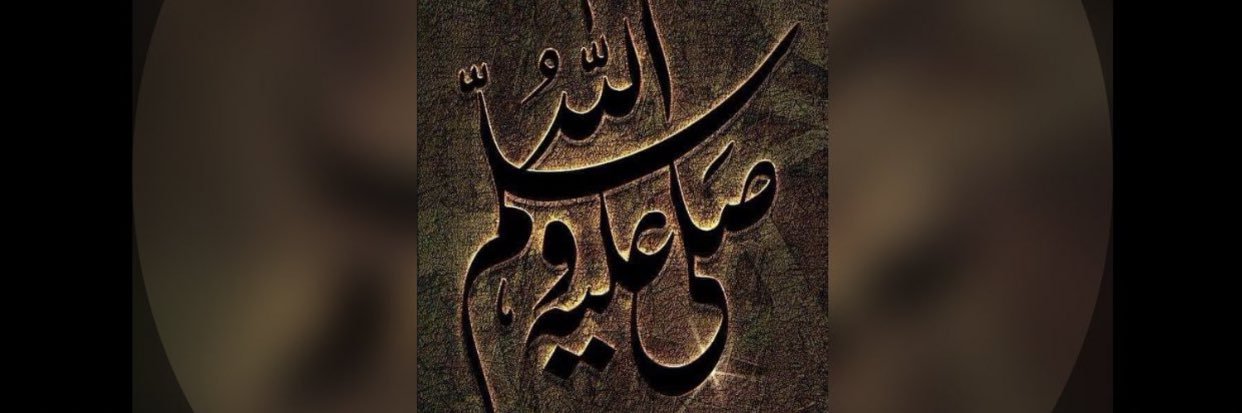 صَلَّى اللّٰهُ عليه وسلّم